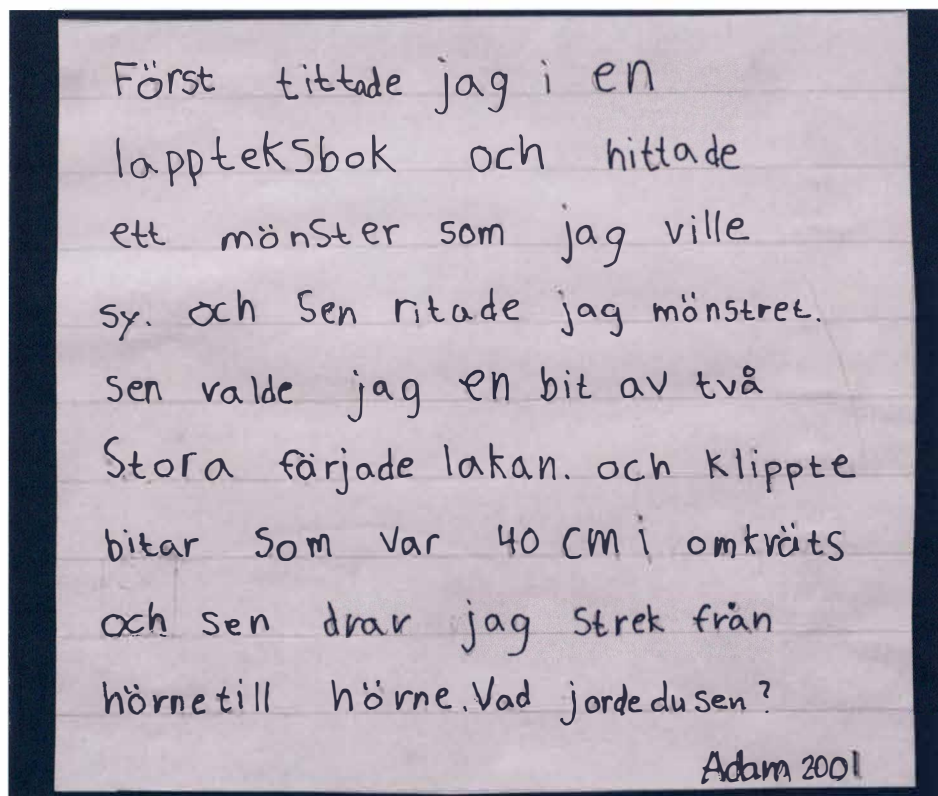 Först tittade jag i en
lappteksbok och hittade
ett mönster som jag ville
sy. och sen ritade jag mönstret.
sen valde jag en bit av två
Stora färjade lakan. och klippte
bitar som var 40 cm i omkräts
och sen drar jag strek från
hörne till hörne. Vad jorde du sen?
Adam 2001